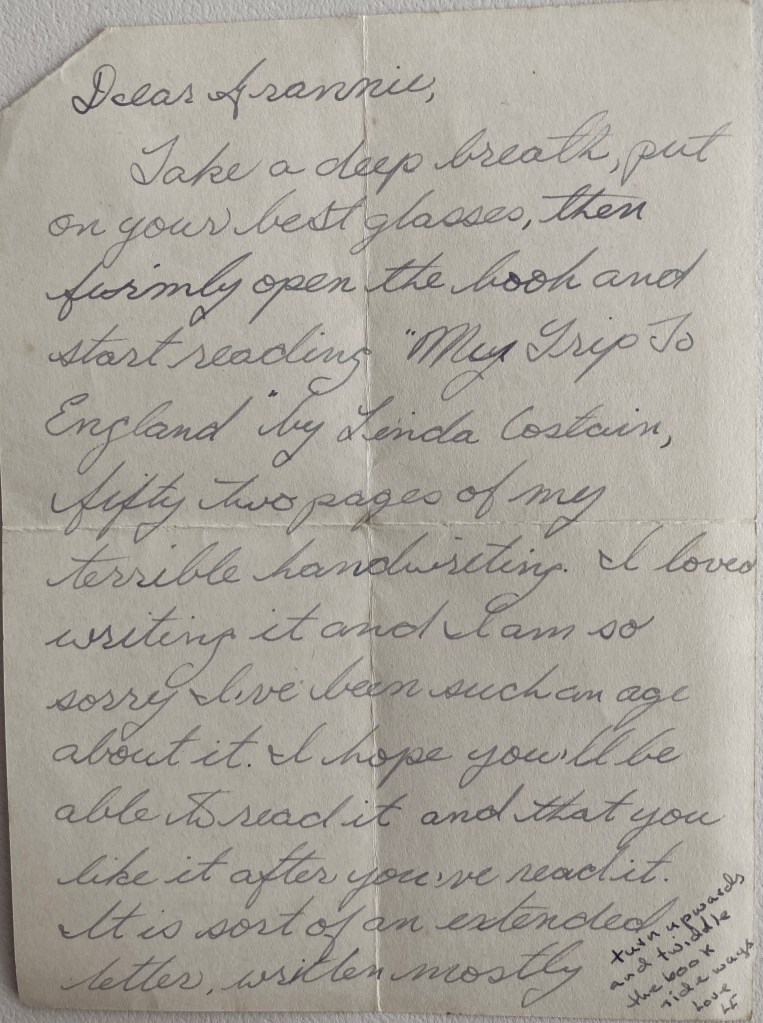 Dear Grannie,
Take a deep breath, put
on your best glasses, then
firmly open the book and
start reading "My Trip To
England" by Linda Costain,
fifty two pages of my
terrible handwriting. I loved
writing it and I am so
sorry I've been such an age
about it. I hope you'll be
able to read it and that you
like it after you've read it.
It is sort of an extended
letter, written mostly
turn upwards
and twiddle
the book
side ways
Love